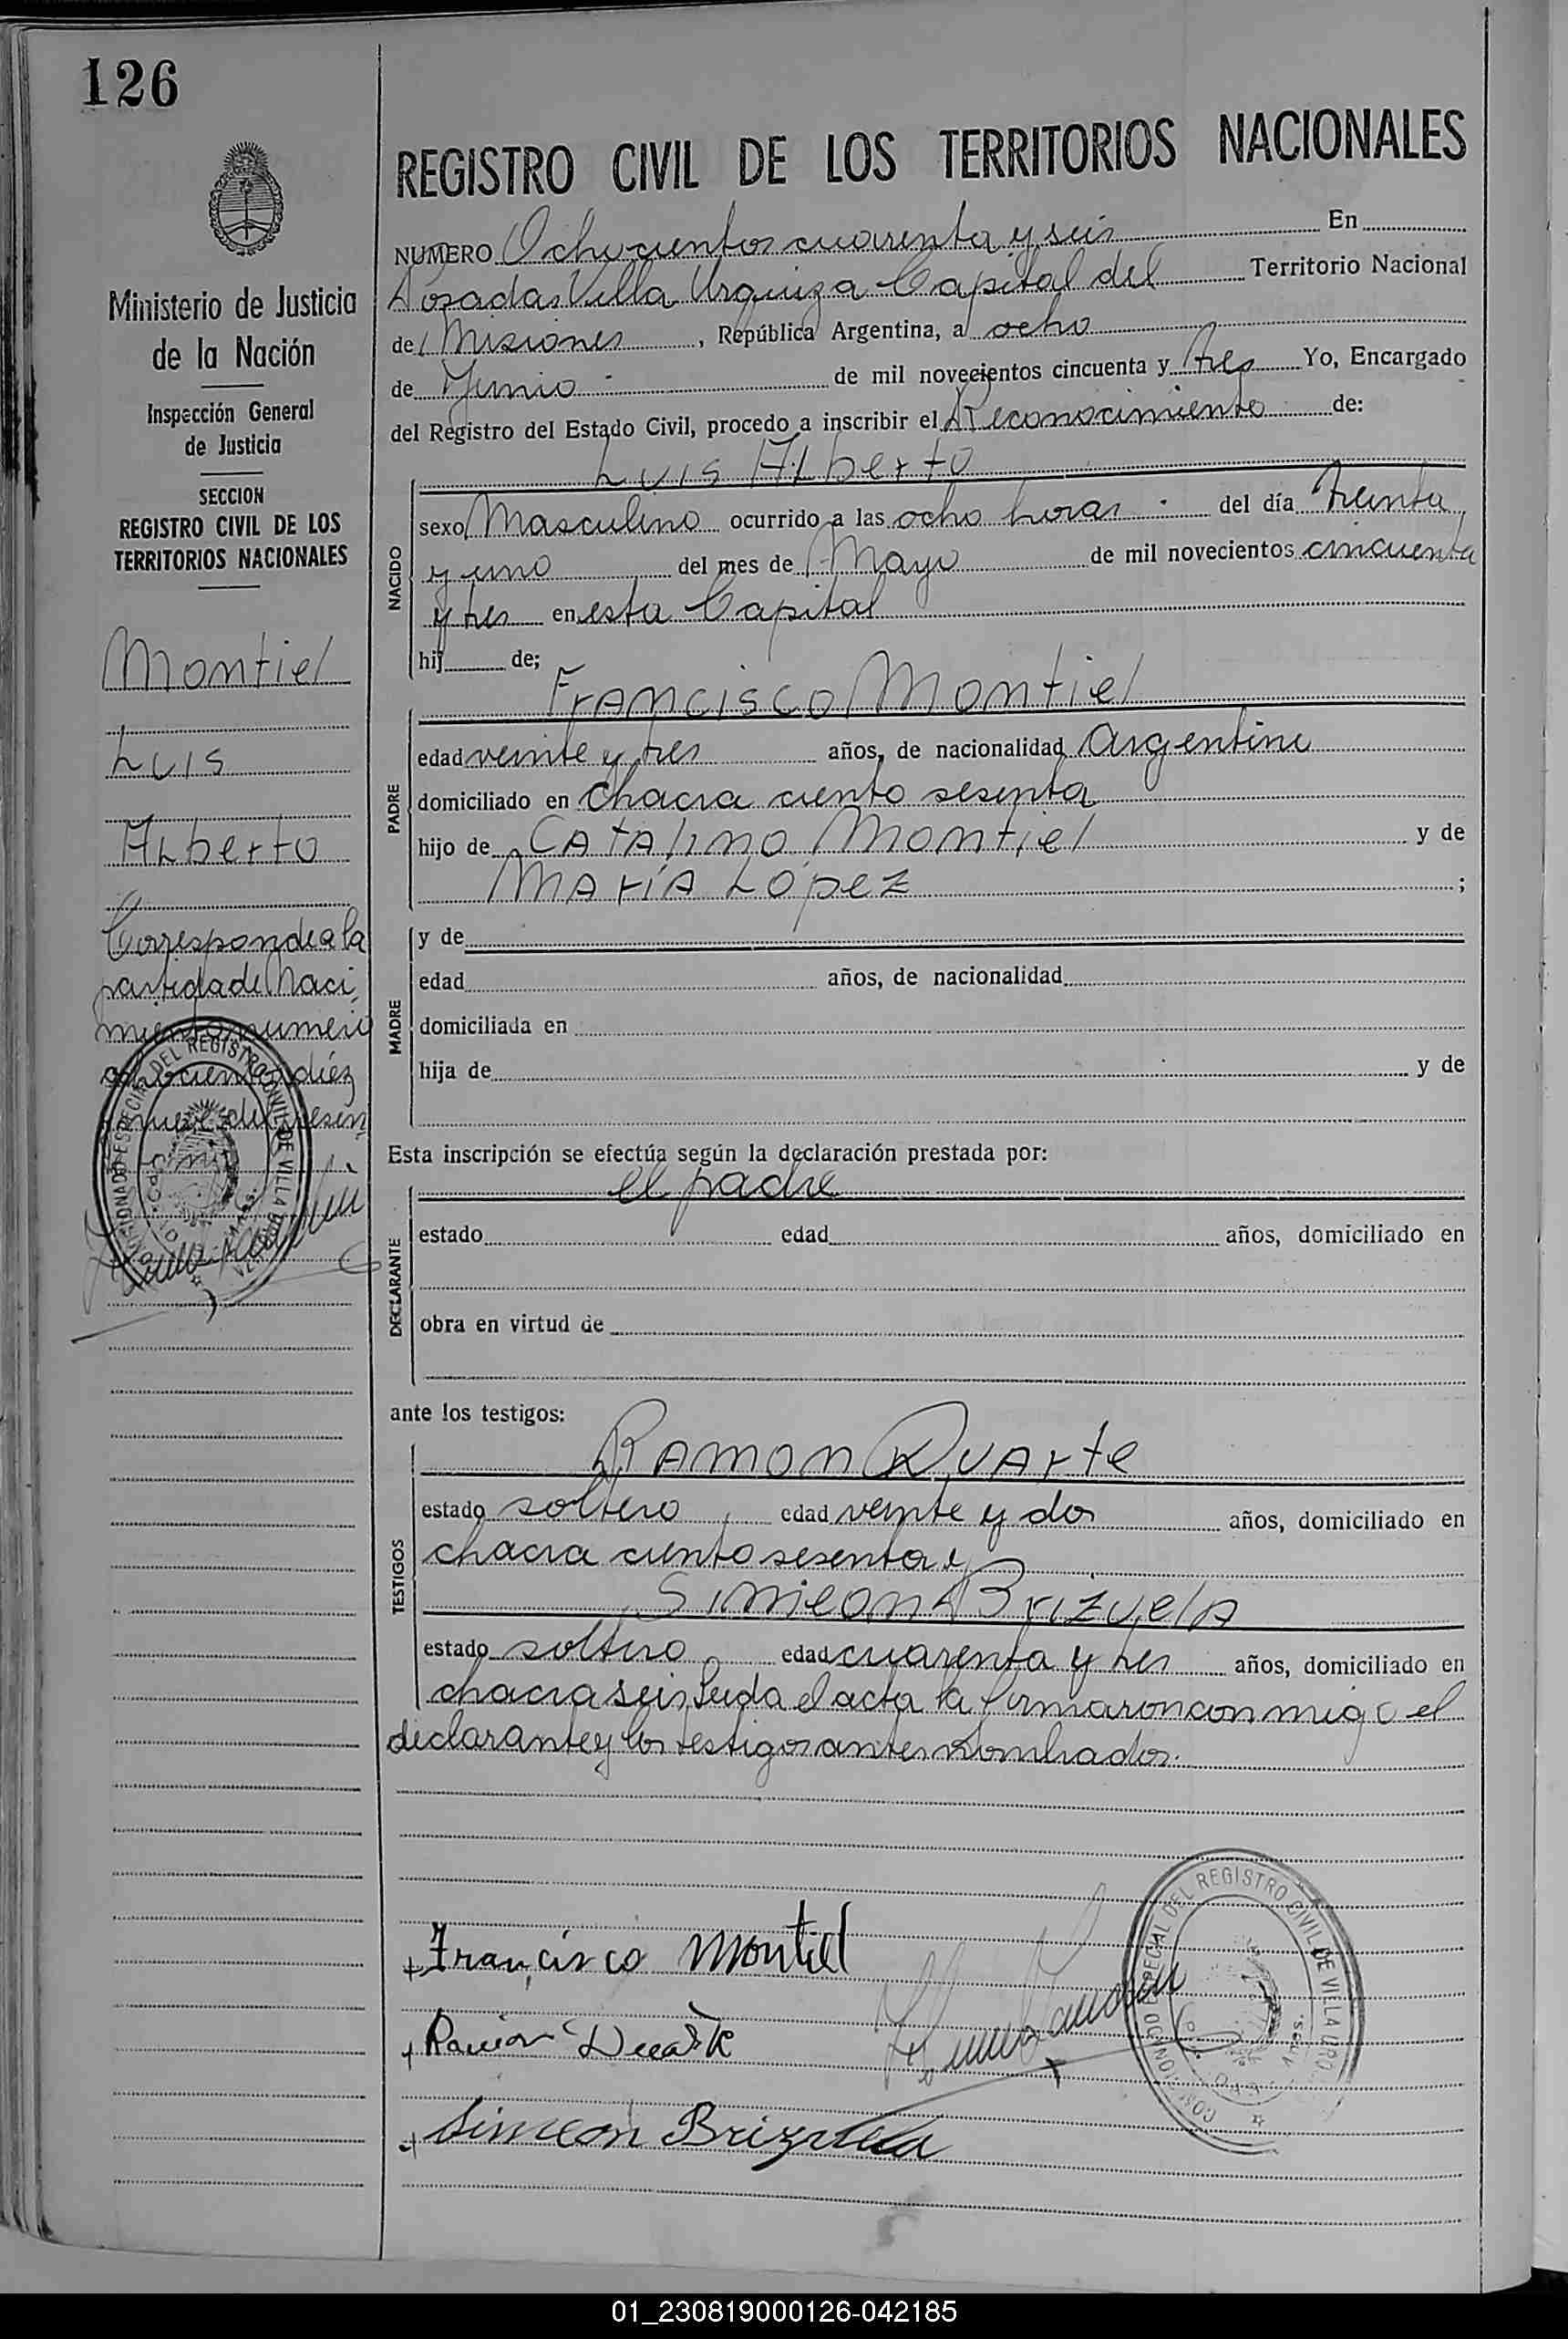 126
REGISTRO CIVIL DE LOS TERRITORIOS NACIONALES
NUMERO Ochocientos cuarenta y seis En
Posadas Villa Urquiza Capital del Territorio Nacional
de Misiones, República Argentina, a ocho
de Junio de mil novecientos cincuenta y tres Yo, Encargado
del Registro del Estado Civil, procedo a inscribir el Reconocimiento de:
Luis Alberto
NACIDO
sexo Masculino ocurrido a las ocho horas del día treinta
y uno del mes de Mayo de mil novecientos cincuenta
y tres en esta Capital
hij de;
Francisco Montiel
PADRE
edad veinte y tres años, de nacionalidad Argentina
domiciliado en chacra ciento sesenta
hijo de Catalino Montiel y de
María López ;
MADRE
y de
edad años, de nacionalidad
domiciliada en
hija de y de
Esta inscripción se efectúa según la declaración prestada por:
el padre
DECLARANTE
estado edad años, domiciliado en
obra en virtud de
ante los testigos:
Ramon Duarte
TESTIGOS
estado soltero edad veinte y dos años, domiciliado en
chacra ciento sesenta y
Simieon Brizuela
estado soltero edad cuarenta y tres años, domiciliado en
chacra seis Leida el acta la firmaron con migo el
declarante y los testigos antes nombrados.
Francisco Montiel
Ramon Duarte
Simeon Brizuela
COMISIONADO ESPECIAL DEL REGISTRO CIVIL DE VILLA
Ministerio de Justicia
de la Nación
Inspección General
de Justicia
SECCION
REGISTRO CIVIL DE LOS
TERRITORIOS NACIONALES
Montiel
Luis
Alberto
Corresponde a la
partida de Naci
miento numero
ochocientos diez
y nueve del presen
te
COMISIONADO ESPECIAL DEL REGISTRO CIVIL DE VILLA
01_230819000126-042185